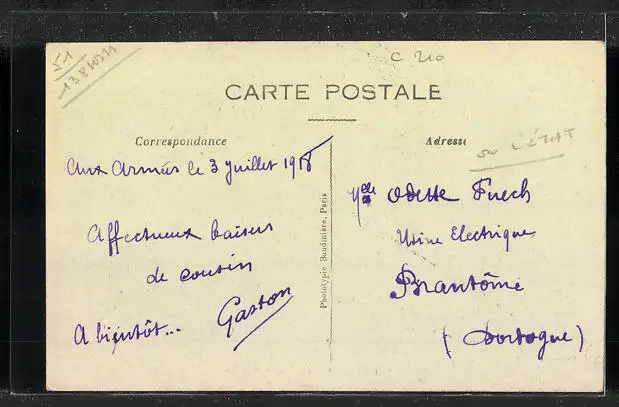 51
C 210
CARTE POSTALE
Correspondance
Adresse
en l'état
Aux Armées le 3 Juillet 1918
Affectueux baisers
de cousin
Gaston
A bientôt...
Phototypie Baudinière, Paris
Mlle Odette Puech
Usine Electrique
Brantôme
(Dordogne)